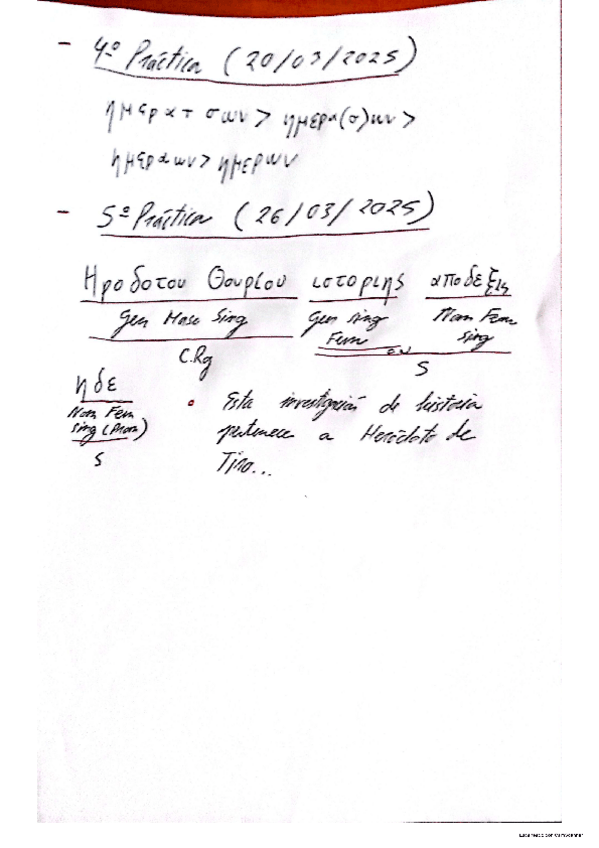 - 4º Práctica (20/03/2025)
ημερα + σων > ημερα(σ)ων >
ημεραων > ημερων
- 5º Práctica (26/03/2025)
Ηροδοτου Θουρίου ιστοριης αποδεξις
Gen Masc Sing Gen sing Nom Fem
Fem Sing
C.Rg S
ηδε
Nom Fem
sing (Pron)
S
• Esta investigación de historia
pertenece a Heródoto de
Tiro...